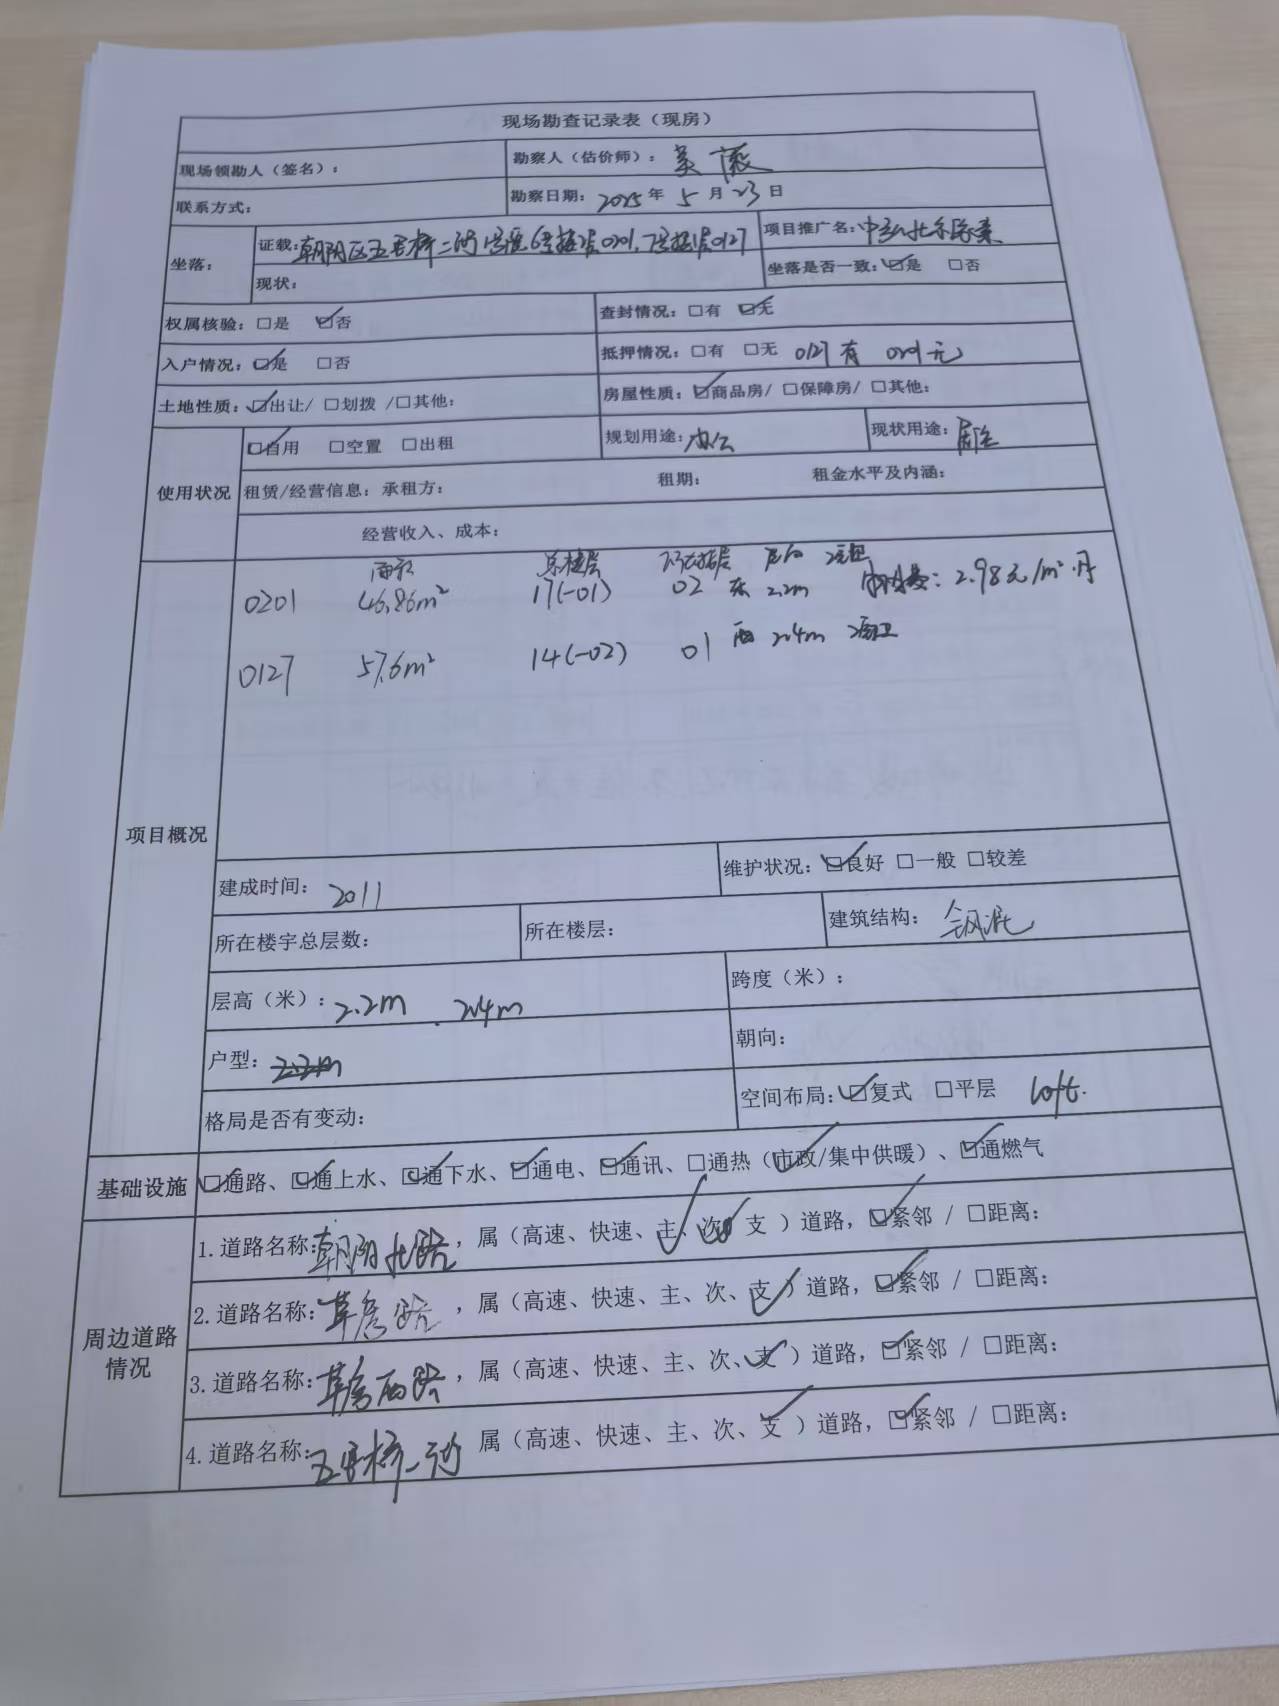 现场勘查记录表（现房）
现场领勘人（签名）： 勘察人（估价师）：
联系方式： 勘察日期：2025年5月23日
坐落： 证载：朝阳区五里桥二街 0201, 0127 项目推广名：中弘北京像素
现状： 坐落是否一致：☑是 □否
权属核验：□是 ☑否 查封情况：□有 ☑无
入户情况：☑是 □否 抵押情况：□有 □无 0127有 0201无
土地性质：☑出让/ □划拨 /□其他： 房屋性质：☑商品房/ □保障房/ □其他：
使用状况 ☑自用 □空置 □出租 规划用途：办公 现状用途：居住
租赁/经营信息：承租方： 租期： 租金水平及内涵：
经营收入、成本：
项目概况
面积 总楼层 所在楼层 层高
0201 46.86m² 17(-01) 02 东 2.2m 2.98元/m²·月
0127 57.6m² 14(-02) 01 西 2.4m
建成时间：2011 维护状况：☑良好 □一般 □较差
所在楼宇总层数： 所在楼层： 建筑结构：钢混
层高（米）：2.2m、2.4m 跨度（米）：
户型：2.2m 朝向：
格局是否有变动： 空间布局：☑复式 □平层 loft.
基础设施 ☑通路、☑通上水、☑通下水、☑通电、☑通讯、□通热（市政/集中供暖）、☑通燃气
周边道路情况
1.道路名称：朝阳北路，属（高速、快速、主、次、支 ）道路，☑紧邻 / □距离：
2.道路名称：草房路，属（高速、快速、主、次、支 ）道路，☑紧邻 / □距离：
3.道路名称：草房西路，属（高速、快速、主、次、支 ）道路，☑紧邻 / □距离：
4.道路名称：五里桥一街 属（高速、快速、主、次、支 ）道路，☑紧邻 / □距离：